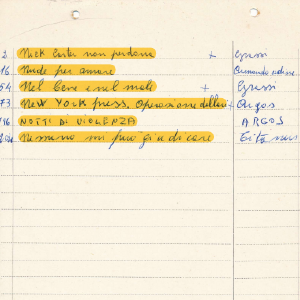 2 Nick Carter non perdona + Egessi
16 Nude per amare
54 Nel bene e nel male + Egessi
73 New York press, Operazione dollari + Argos
NOTTI DI VIOLENZA ARGOS
Nessuno mi può giudicare